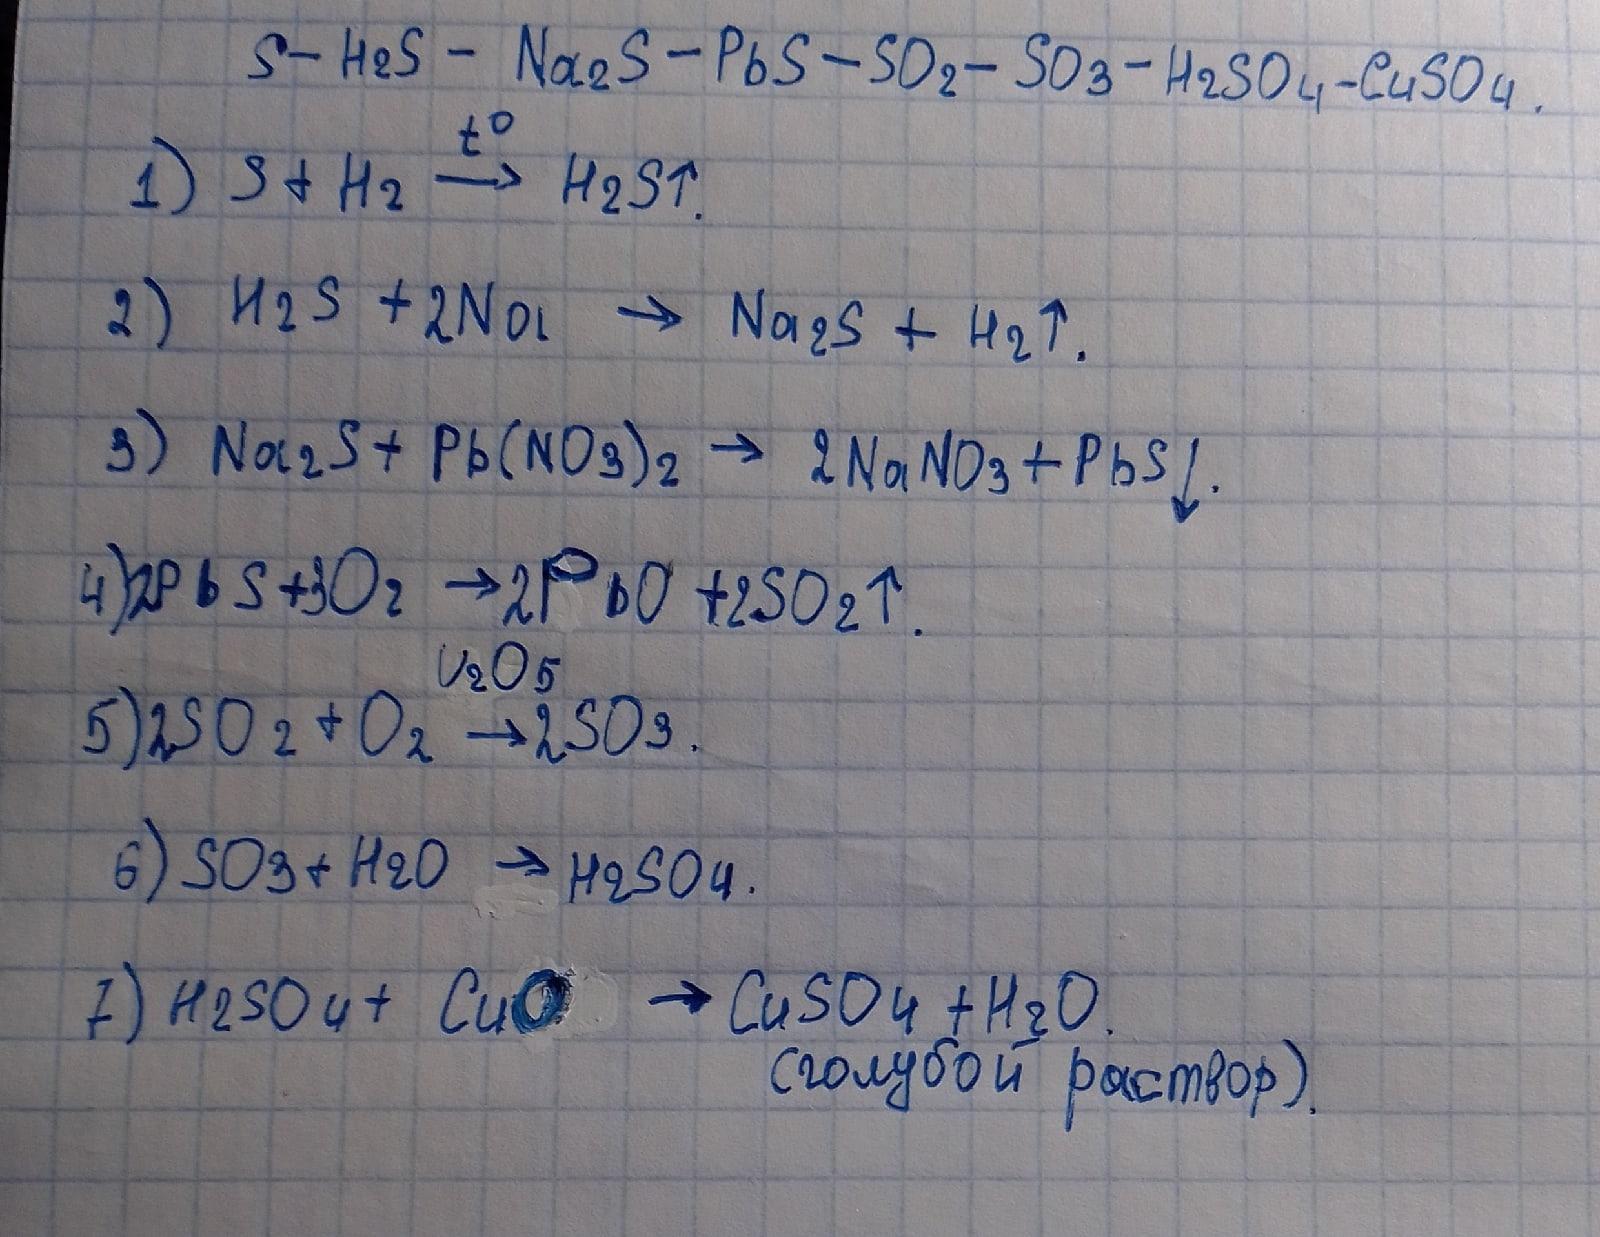 S – H2S – Na2S – PbS – SO2 – SO3 – H2SO4 – CuSO4.
t°
1) S + H2 → H2S↑.
2) H2S + 2Na → Na2S + H2↑.
3) Na2S + Pb(NO3)2 → 2NaNO3 + PbS↓.
4) 2PbS + 3O2 → 2PbO + 2SO2↑.
V2O5
5) 2SO2 + O2 → 2SO3.
6) SO3 + H2O → H2SO4.
7) H2SO4 + CuO → CuSO4 + H2O.
(голубой раствор).